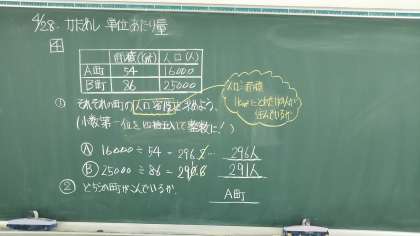 4/28. かたれん 単位あたり量
4
面積(km²) 人口(人)
A町 54 16000
B町 86 25000
① それぞれの町の人口密度を求めよう。
(小数第一位を四捨五入して整数に!)
人口÷面積
1km²にどれだけの人が
住んでいるか
Ⓐ 16000÷54=296.2… 296人
Ⓑ 25000÷86=290.8 291人
② どちらの町がこんでいるか。
A町